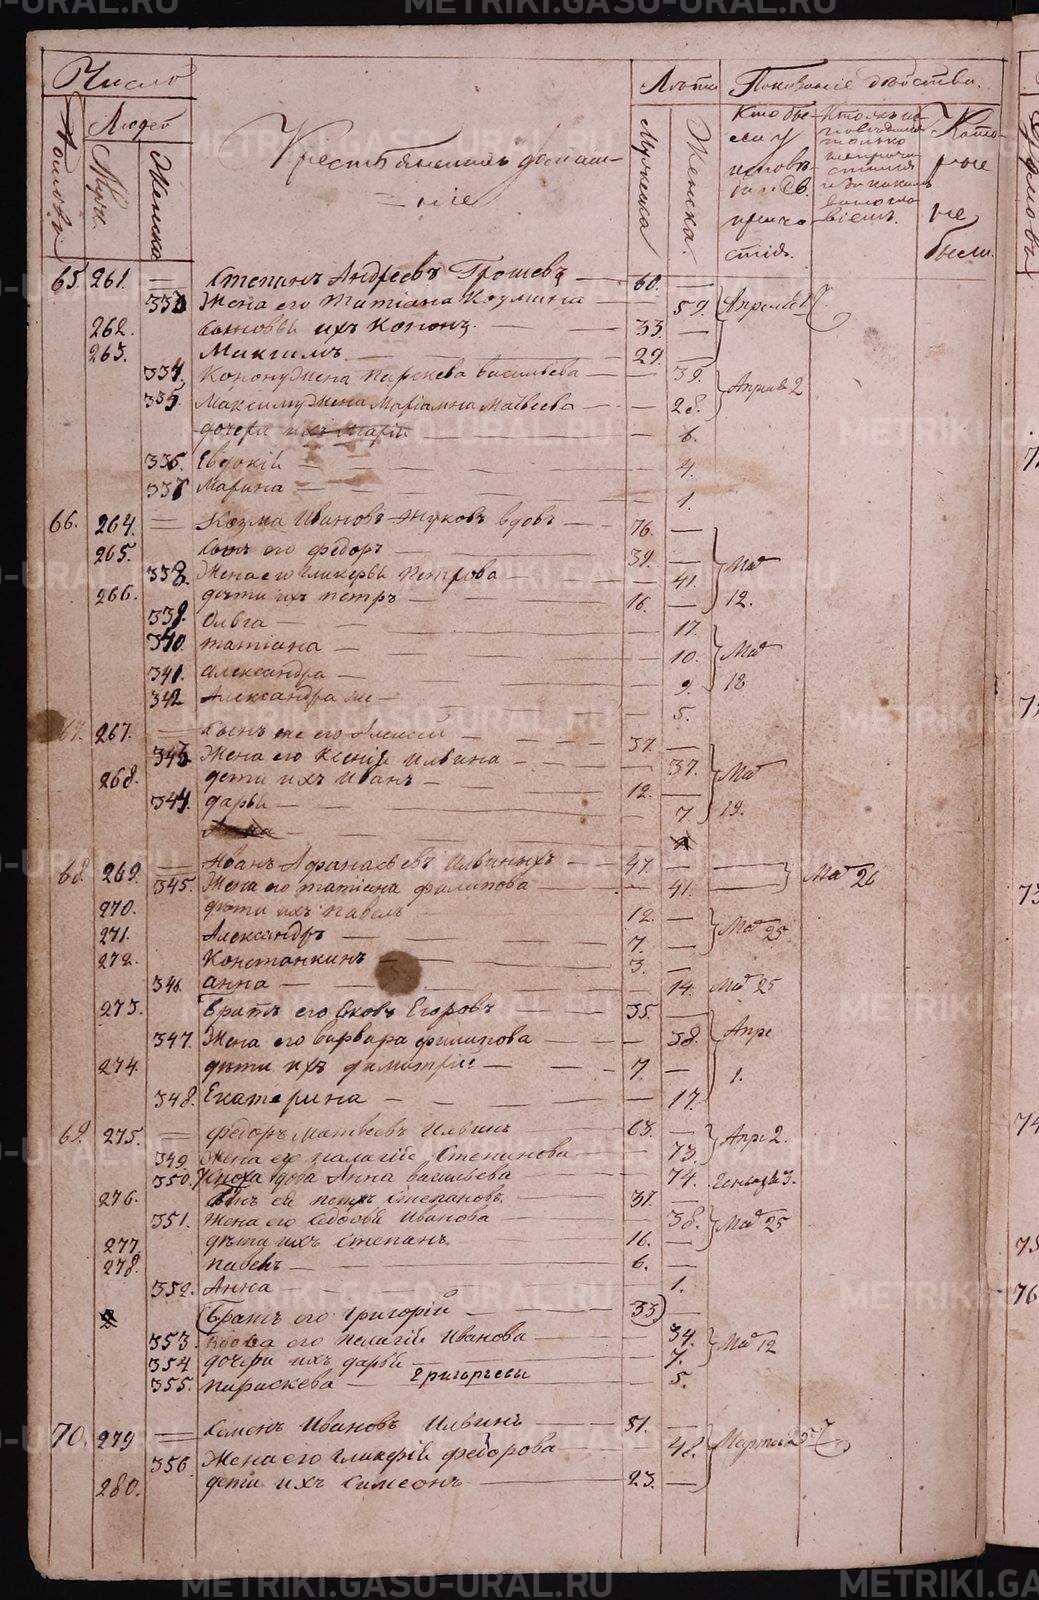 Число
Людей
Муж.
Женска
Лѣта
Мужска
Женска.
Показаніе дѣйства.
Кто бы
ли у
исповѣ
ди и Св.
причас
тія.
Которые
не
были.
Крестьянскіе домаш
= ніе
65. 261. — Степанъ Андреевъ Грошевъ — 60. —
333 Жена его Татіана Козмина — 59. Апреля 1
262. сыновья ихъ Кононъ — 33. —
263. Максимъ — 29. —
334. Конону жена Параскева Васильева — 39. Апреля 2
335. Максиму жена Маріамна Матвеева — 28.
дочери ихъ Маріи — 6.
336. Евдокія — 4.
337 Марина — 1.
66. 264. — Козма Ивановъ Жуковъ вдовъ — 76. —
265. сынъ его Федоръ — 39. — Маія 12.
338. Жена его Гликерья Петрова — 41.
266. дѣти ихъ Петръ — 16. —
339. Ольга — 17.
340. Татіана — 10. Маія 18
341. Александра — 9.
342 Александра же — 5.
67. 267. — Сынъ же его Алексей — 37. —
343. Жена его Ксенія Ильина — 37. Маія 19.
268. дети ихъ Иванъ — 12. —
344. Дарья — 7
Анна —
68. 269. — Иванъ Афанасьевъ Ильиныхъ — 47. — Маія 26
345. Жена его Татіана Филипова — 41.
270. дѣти ихъ Павелъ — 12. — Маія 25
271. Александръ — 7. —
272. Константинъ — 3. —
346. Анна — 14. Маія 25
273. Братъ его Яковъ Егоровъ — 35. —
347. Жена его Варвара Филипова — 38. Апре
274. дѣти ихъ Димитрій — 7. — 1.
348. Екатерина — 17.
69. 275. — Федоръ Матвеевъ Ильинъ — 68. — Апре 2.
349. Жена его Пелагія Степанова — 73.
350. Сноха вдова Анна Васильева — 74. Генваря 3.
276. Сынъ ея Петръ Степановъ — 37. —
351. Жена его Федосья Иванова — 38. Маія 25
277. дѣти ихъ Степанъ — 16. —
278. Павелъ — 6. —
352. Анна — 1.
Братъ его Григорій — 33. —
353. вдова его Пелагія Иванова — 34. Маія 12
354 дочери ихъ Дарья — 7.
355. Параскева — Григорьевы — 5.
70. 279 — Семенъ Ивановъ Ильинъ — 51. —
356. Жена его Гликерія Федорова — 48. Марта 25
280. дети ихъ Симеонъ — 23. —
METRIKI.GASU-URAL.RU